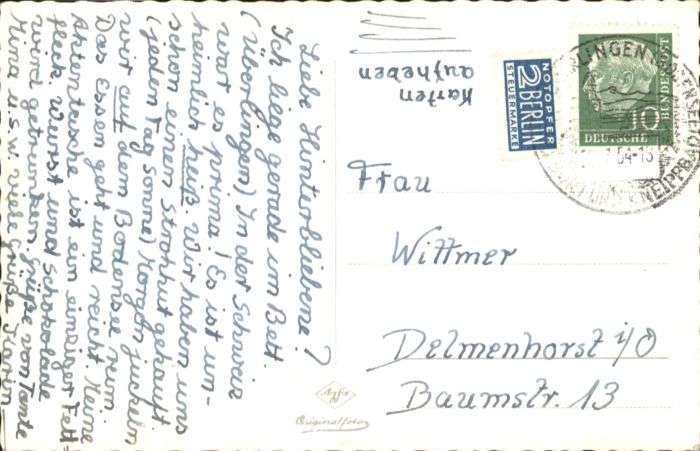 Liebe Hinterbliebene!
Ich liege gerade im Bett.
(Überlingen) In der Schweiz
war es prima! Es ist un-
heimlich heiß. Wir haben uns
schon einen Strohhut gekauft
(jeden Tag Sonne) Morgen juckeln
wir auf dem Bodensee rum
Das Essen geht und reicht. Meine
Aktentasche ist ein einziger Fett-
fleck. Wurst und Schokolade
wird getrunken. Grüße von Tante
Mina u.s.w. viele Grüße Karen
Karten
aufheben
NOTOPFER
2 BERLIN
STEUERMARKE
DEUTSCHE BUNDESPOST
10
Frau
Wittmer
Delmenhorst i/O
Baumstr. 13
Originalfoto